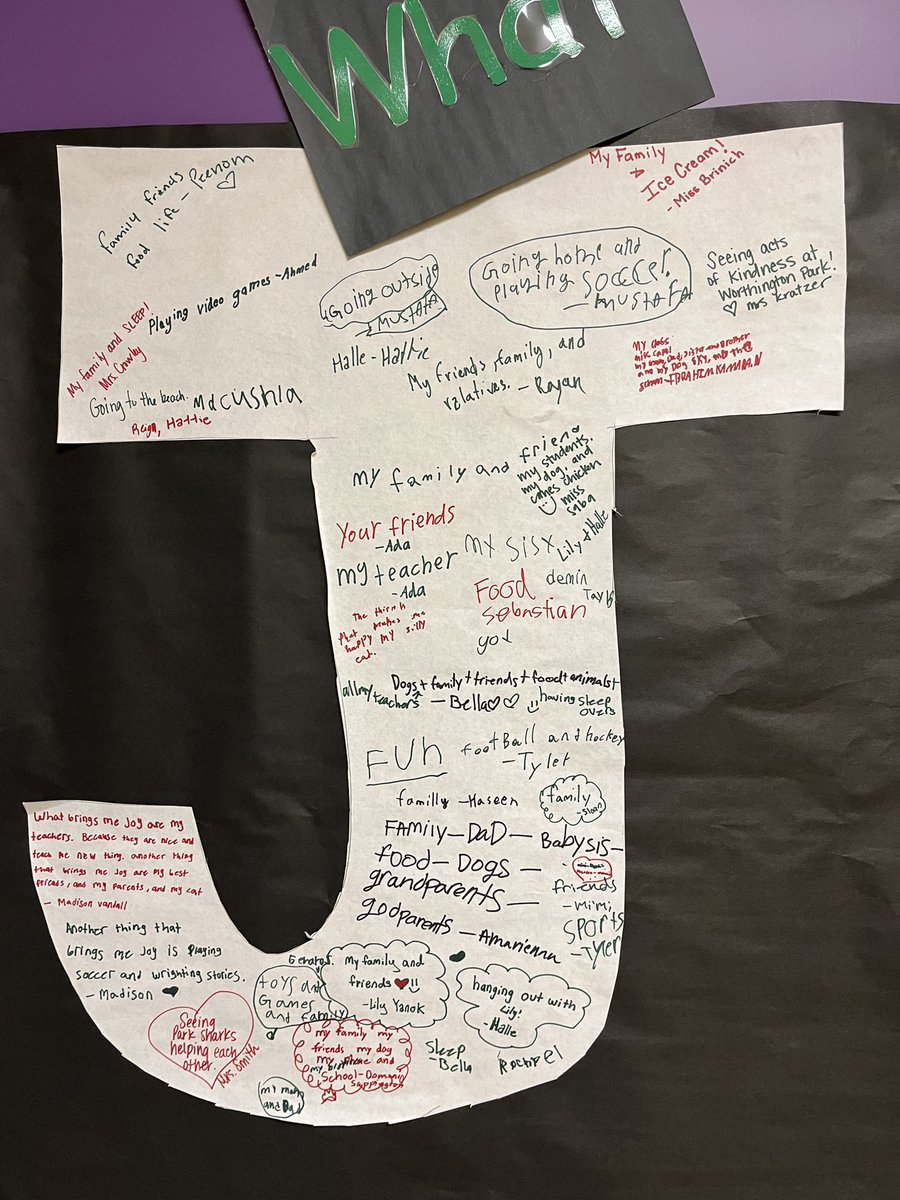 What
Family friends
food life - Peenom
My Family
&
Ice Cream!
- Miss Brinich
Playing video games - Ahmed
Going outside
- MUSTAFA
Going home and
playing SOCCEr.
- MUSTAFA
Seeing acts
of Kindness at
Worthington Park!
mrs Kratzer
My Family and SLEEP!
Mrs. Crowley
Going to the beach. Macushla
Reign, Hattie
Halle - Hattie
My friends, family, and
relatives. - Rayan
My dogs
my mom, Dad, sister and Brother
and my Dog SKY, and the
school - IBRAHIM KAMRAN
my family and friend
my students.
my dog, and
canes chicken
miss
saba
Your friends
- Ada
my teacher
- Ada
my sisx
Lily & Halle
Food
sebastian
demin
Tayl
you
The think
that makes me
happy my silly
cat.
Dogs + family + friends + food + animals +
all my teachers
- Bella
having sleep
overs
Fun
football and hockey
- Tyler
familly - Haseen
family
- Sloan
FAMily - DaD - Babysis -
food - Dogs -
grandparents -
godparents - Amarienna
friends
- Mimi
SPORTS
- Tyler
What brings me Joy are my
teachers. Because they are nice and
teach me new thing. another thing
that brings me Joy are my best
friends, and my parents, and my cat
- Madison vandall
Another thing that
brings me Joy is Playing
soccer and wrighting stories.
- Madison
toys and
Games
and family
My family and
friends
- Lily Yanok
hanging out with
Lily!
- Halle
Seeing
Park Sharks
helping each
other.
Mrs. Smith
my family my
friends my dog
my phone and
School - Domanin
Sappington
my mom
and Dad
Sleep
- Bella